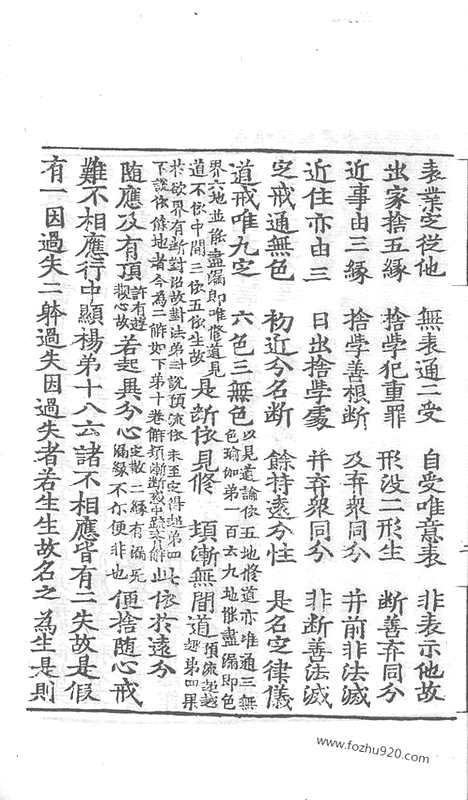 表業定從他　無表通二受　自受唯意表　非表示他故
出家捨五緣　捨學犯重罪　形没二形生　断善弃同分
近事由三緣　捨學善根断　及弃衆同分　并前非法滅
近住亦由三　日出捨學處　并弃衆同分　非断善法滅
定戒通無色　初近分名断　餘持遠分性　是名定律儀
道戒唯九定　六色三無色以見道論依五地修道亦唯通三無色瑜伽第一百六九地能盡漏即色
界六地並能盡漏即唯修道見道不依中間二依五依生故是断依見修　頓漸無間道頓流超越超第四果
於欲界有断對治故對法第三説預流依未至定得超第四七下證依餘地者今為二解如下第十卷解頓漸断或中此依於遠分
随應及有頂許有遊觀心故若起異分心定散二縁有漏无漏縁不尓便非也便捨随心戒
難不相應行中顯楊弟十八云諸不相應皆有二失故是假
有一因過失二躰過失因過失者若生生故名之為生是則
www.fozhu920.com